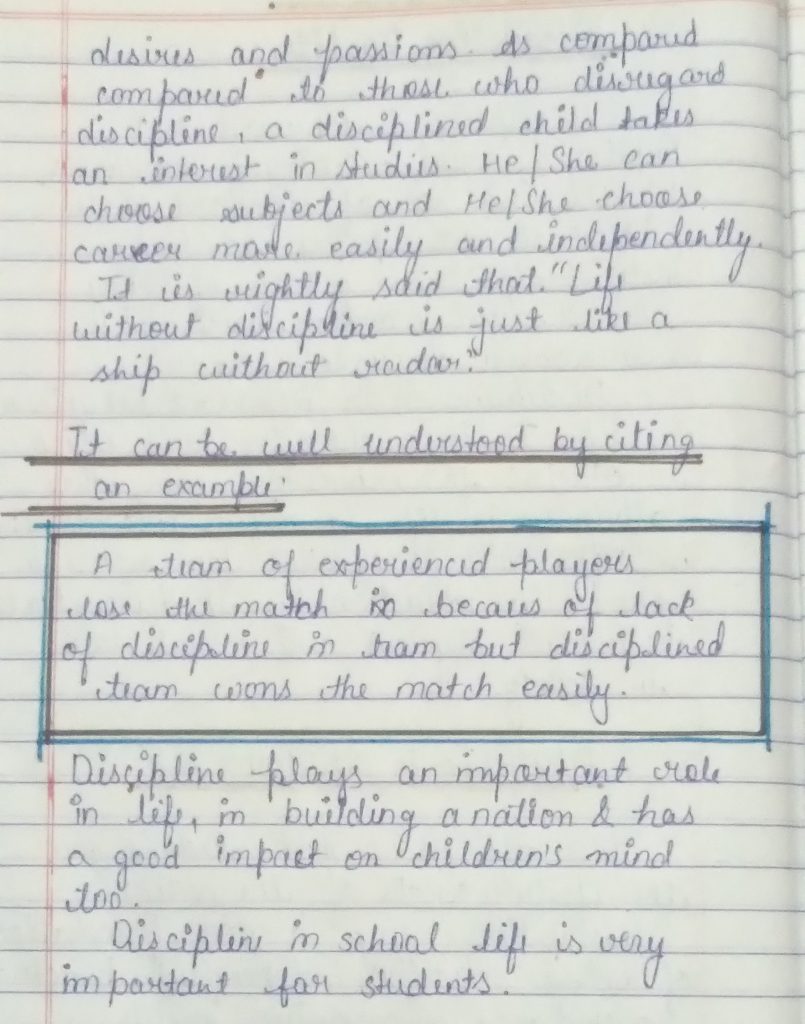 desires and passions. As compared
compared to those who disregard
discipline, a disciplined child takes
an interest in studies. He/She can
choose subjects and He/She choose
career more easily and independently.
It is rightly said that "Life
without discipline is just like a
ship without radar."
It can be well understood by citing
an example.
A team of experienced players
lose the match becaus of lack
of discipline in team but disciplined
team wons the match easily.
Discipline plays an important role
in life, in building a nation & has
a good impact on children's mind
too.
Discipline in school life is very
important for students.